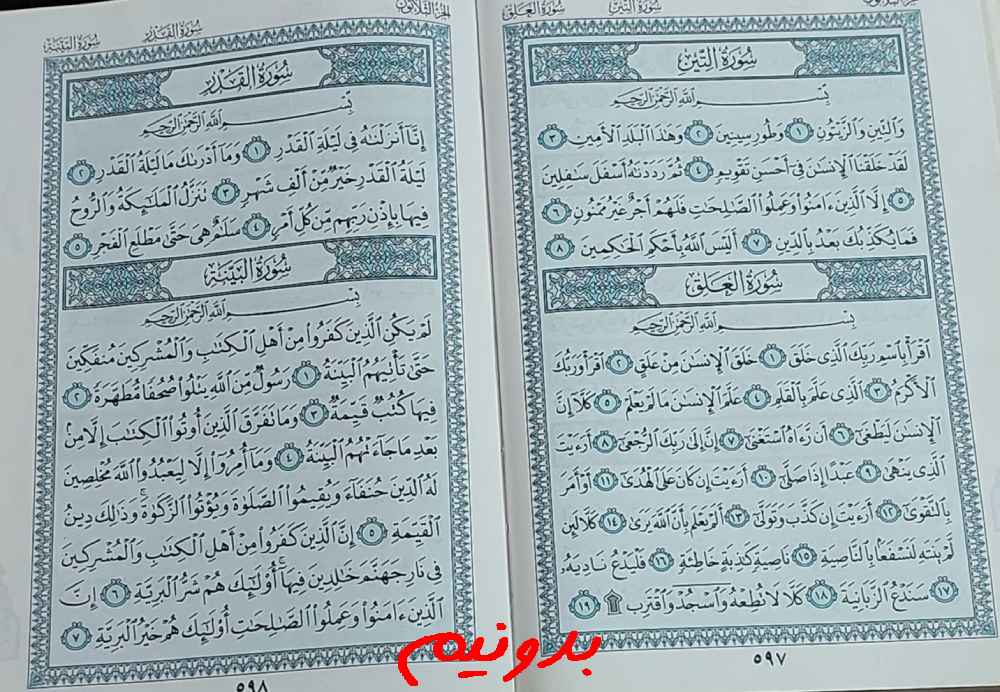 الجزء الثلاثون
سورة التين
سورة العلق
سُورَةُ التِّينِ
بِسْمِ اللَّهِ الرَّحْمَٰنِ الرَّحِيمِ
وَالتِّينِ وَالزَّيْتُونِ ١ وَطُورِ سِينِينَ ٢ وَهَٰذَا الْبَلَدِ الْأَمِينِ ٣
لَقَدْ خَلَقْنَا الْإِنسَٰنَ فِي أَحْسَنِ تَقْوِيمٍ ٤ ثُمَّ رَدَدْنَٰهُ أَسْفَلَ سَٰفِلِينَ
٥ إِلَّا الَّذِينَ ءَامَنُوا وَعَمِلُوا الصَّٰلِحَٰتِ فَلَهُمْ أَجْرٌ غَيْرُ مَمْنُونٍ ٦
فَمَا يُكَذِّبُكَ بَعْدُ بِالدِّينِ ٧ أَلَيْسَ اللَّهُ بِأَحْكَمِ الْحَٰكِمِينَ ٨
سُورَةُ الْعَلَقِ
بِسْمِ اللَّهِ الرَّحْمَٰنِ الرَّحِيمِ
اقْرَأْ بِاسْمِ رَبِّكَ الَّذِي خَلَقَ ١ خَلَقَ الْإِنسَٰنَ مِنْ عَلَقٍ ٢ اقْرَأْ وَرَبُّكَ
الْأَكْرَمُ ٣ الَّذِي عَلَّمَ بِالْقَلَمِ ٤ عَلَّمَ الْإِنسَٰنَ مَا لَمْ يَعْلَمْ ٥ كَلَّا إِنَّ
الْإِنسَٰنَ لَيَطْغَىٰ ٦ أَن رَّءَاهُ اسْتَغْنَىٰ ٧ إِنَّ إِلَىٰ رَبِّكَ الرُّجْعَىٰ ٨ أَرَءَيْتَ
الَّذِي يَنْهَىٰ ٩ عَبْدًا إِذَا صَلَّىٰ ١٠ أَرَءَيْتَ إِن كَانَ عَلَى الْهُدَىٰ ١١ أَوْ أَمَرَ
بِالتَّقْوَىٰ ١٢ أَرَءَيْتَ إِن كَذَّبَ وَتَوَلَّىٰ ١٣ أَلَمْ يَعْلَم بِأَنَّ اللَّهَ يَرَىٰ ١٤ كَلَّا لَئِن
لَّمْ يَنتَهِ لَنَسْفَعًا بِالنَّاصِيَةِ ١٥ نَاصِيَةٍ كَٰذِبَةٍ خَاطِئَةٍ ١٦ فَلْيَدْعُ نَادِيَهُ
١٧ سَنَدْعُ الزَّبَانِيَةَ ١٨ كَلَّا لَا تُطِعْهُ وَاسْجُدْ وَاقْتَرِب ۩ ١٩
٥٩٧
الجزء الثلاثون
سورة القدر
سورة البينة
سُورَةُ الْقَدْرِ
بِسْمِ اللَّهِ الرَّحْمَٰنِ الرَّحِيمِ
إِنَّا أَنزَلْنَٰهُ فِي لَيْلَةِ الْقَدْرِ ١ وَمَا أَدْرَىٰكَ مَا لَيْلَةُ الْقَدْرِ ٢
لَيْلَةُ الْقَدْرِ خَيْرٌ مِّنْ أَلْفِ شَهْرٍ ٣ تَنَزَّلُ الْمَلَٰئِكَةُ وَالرُّوحُ
فِيهَا بِإِذْنِ رَبِّهِم مِّن كُلِّ أَمْرٍ ٤ سَلَٰمٌ هِيَ حَتَّىٰ مَطْلَعِ الْفَجْرِ ٥
سُورَةُ الْبَيِّنَةِ
بِسْمِ اللَّهِ الرَّحْمَٰنِ الرَّحِيمِ
لَمْ يَكُنِ الَّذِينَ كَفَرُوا مِنْ أَهْلِ الْكِتَٰبِ وَالْمُشْرِكِينَ مُنفَكِّينَ
حَتَّىٰ تَأْتِيَهُمُ الْبَيِّنَةُ ١ رَسُولٌ مِّنَ اللَّهِ يَتْلُوا صُحُفًا مُّطَهَّرَةً ٢
فِيهَا كُتُبٌ قَيِّمَةٌ ٣ وَمَا تَفَرَّقَ الَّذِينَ أُوتُوا الْكِتَٰبَ إِلَّا مِن
بَعْدِ مَا جَاءَتْهُمُ الْبَيِّنَةُ ٤ وَمَا أُمِرُوا إِلَّا لِيَعْبُدُوا اللَّهَ مُخْلِصِينَ
لَهُ الدِّينَ حُنَفَاءَ وَيُقِيمُوا الصَّلَوٰةَ وَيُؤْتُوا الزَّكَوٰةَ ۚ وَذَٰلِكَ دِينُ
الْقَيِّمَةِ ٥ إِنَّ الَّذِينَ كَفَرُوا مِنْ أَهْلِ الْكِتَٰبِ وَالْمُشْرِكِينَ
فِي نَارِ جَهَنَّمَ خَٰلِدِينَ فِيهَا ۚ أُولَٰئِكَ هُمْ شَرُّ الْبَرِيَّةِ ٦ إِنَّ
الَّذِينَ ءَامَنُوا وَعَمِلُوا الصَّٰلِحَٰتِ أُولَٰئِكَ هُمْ خَيْرُ الْبَرِيَّةِ ٧
٥٩٨
بدونیم